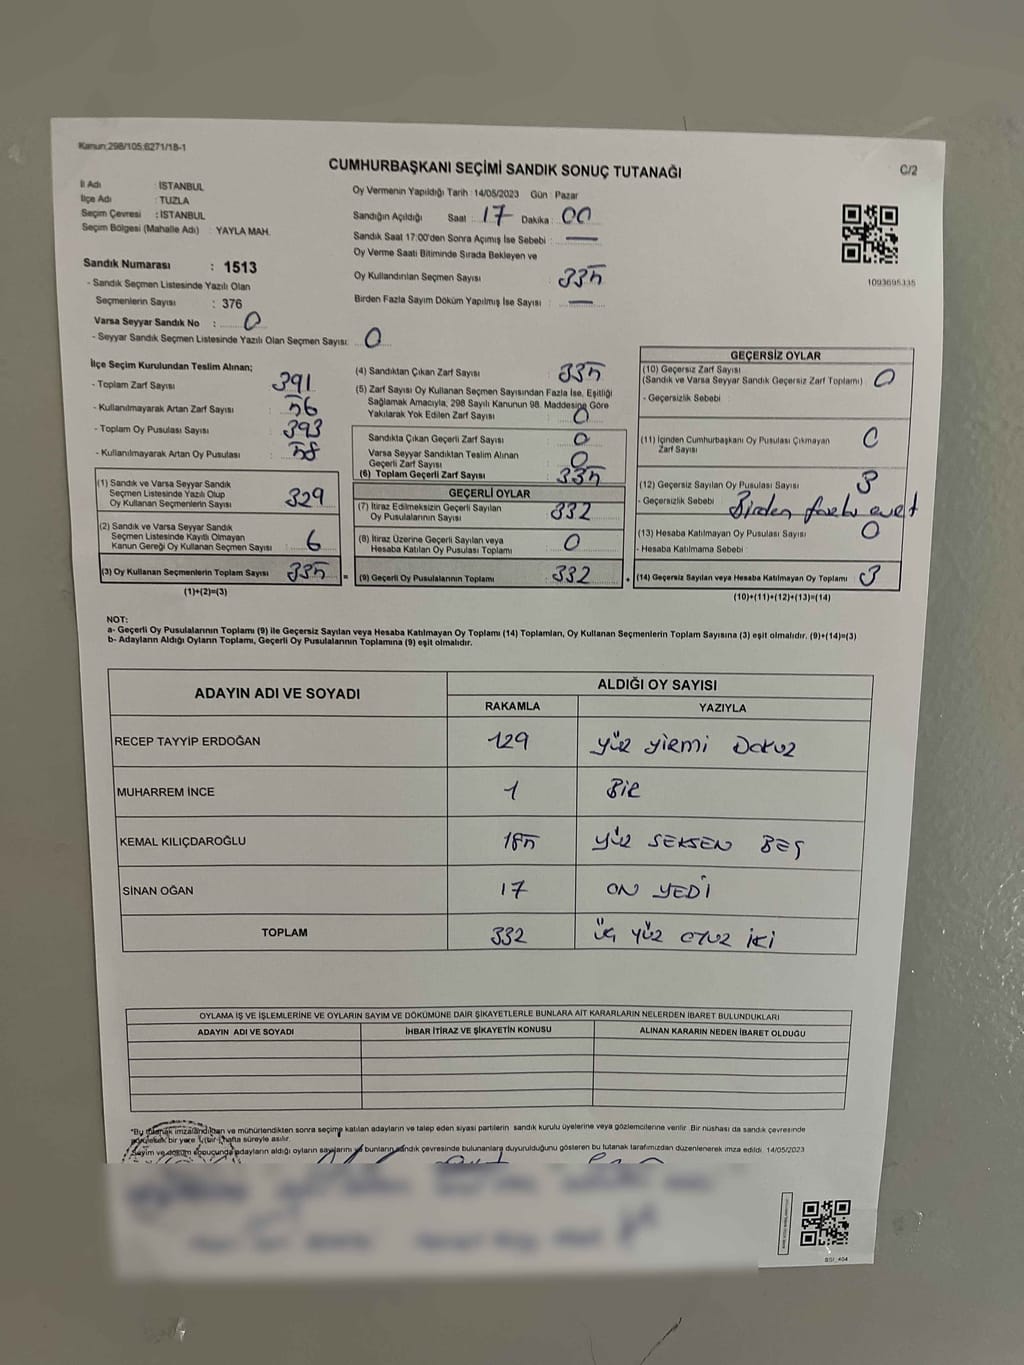 Kanun:298/105;6271/18-1
CUMHURBAŞKANI SEÇİMİ SANDIK SONUÇ TUTANAĞI
C/2
İl Adı : İSTANBUL
İlçe Adı : TUZLA
Seçim Çevresi : İSTANBUL
Seçim Bölgesi (Mahalle Adı) : YAYLA MAH.
Sandık Numarası : 1513
- Sandık Seçmen Listesinde Yazılı Olan
Seçmenlerin Sayısı : 376
Varsa Seyyar Sandık No : 0
- Seyyar Sandık Seçmen Listesinde Yazılı Olan Seçmen Sayısı: 0
Oy Vermenin Yapıldığı Tarih : 14/05/2023 Gün : Pazar
Sandığın Açıldığı Saat : 17 Dakika : 00
Sandık Saat 17:00'den Sonra Açımış İse Sebebi : —
Oy Verme Saati Bitiminde Sırada Bekleyen ve
Oy Kullandırılan Seçmen Sayısı : 335
Birden Fazla Sayım Döküm Yapılmış İse Sayısı : —
1093695335
İlçe Seçim Kurulundan Teslim Alınan;
- Toplam Zarf Sayısı : 391
- Kullanılmayarak Artan Zarf Sayısı : 56
- Toplam Oy Pusulası Sayısı : 393
- Kullanılmayarak Artan Oy Pusulası : 58
(1) Sandık ve Varsa Seyyar Sandık
Seçmen Listesinde Yazılı Olup
Oy Kullanan Seçmenlerin Sayısı : 329
(2) Sandık ve Varsa Seyyar Sandık
Seçmen Listesinde Kayıtlı Olmayan
Kanun Gereği Oy Kullanan Seçmen Sayısı : 6
(3) Oy Kullanan Seçmenlerin Toplam Sayısı : 335
(1)+(2)=(3)
(4) Sandıktan Çıkan Zarf Sayısı : 335
(5) Zarf Sayısı Oy Kullanan Seçmen Sayısından Fazla İse, Eşitliği
Sağlamak Amacıyla, 298 Sayılı Kanunun 98. Maddesine Göre
Yakılarak Yok Edilen Zarf Sayısı : 0
Sandıkta Çıkan Geçerli Zarf Sayısı : 0
Varsa Seyyar Sandıktan Teslim Alınan
Geçerli Zarf Sayısı : 0
(6) Toplam Geçerli Zarf Sayısı : 335
GEÇERLİ OYLAR
(7) İtiraz Edilmeksizin Geçerli Sayılan
Oy Pusulalarının Sayısı : 332
(8) İtiraz Üzerine Geçerli Sayılan veya
Hesaba Katılan Oy Pusulası Toplamı : 0
= (9) Geçerli Oy Pusulalarının Toplamı : 332
GEÇERSİZ OYLAR
(10) Geçersiz Zarf Sayısı
(Sandık ve Varsa Seyyar Sandık Geçersiz Zarf Toplamı) : 0
- Geçersizlik Sebebi :
(11) İçinden Cumhurbaşkanı Oy Pusulası Çıkmayan
Zarf Sayısı : 0
(12) Geçersiz Sayılan Oy Pusulası Sayısı : 3
- Geçersizlik Sebebi : Birden fazla evet
(13) Hesaba Katılmayan Oy Pusulası Sayısı : 0
- Hesaba Katılmama Sebebi :
+ (14) Geçersiz Sayılan veya Hesaba Katılmayan Oy Toplamı : 3
(10)+(11)+(12)+(13)=(14)
NOT:
a- Geçerli Oy Pusulalarının Toplamı (9) ile Geçersiz Sayılan veya Hesaba Katılmayan Oy Toplamı (14) Toplamları, Oy Kullanan Seçmenlerin Toplam Sayısına (3) eşit olmalıdır. (9)+(14)=(3)
b- Adayların Aldığı Oyların Toplamı, Geçerli Oy Pusulalarının Toplamına (9) eşit olmalıdır.
ADAYIN ADI VE SOYADI
ALDIĞI OY SAYISI
RAKAMLA YAZIYLA
RECEP TAYYİP ERDOĞAN 129 YÜZ YİRMİ DOKUZ
MUHARREM İNCE 1 BİR
KEMAL KILIÇDAROĞLU 185 YÜZ SEKSEN BEŞ
SİNAN OĞAN 17 ON YEDİ
TOPLAM 332 ÜÇ YÜZ OTUZ İKİ
OYLAMA İŞ VE İŞLEMLERİNE VE OYLARIN SAYIM VE DÖKÜMÜNE DAİR ŞİKAYETLERLE BUNLARA AİT KARARLARIN NELERDEN İBARET BULUNDUKLARI
ADAYIN ADI VE SOYADI İHBAR İTİRAZ VE ŞİKAYETİN KONUSU ALINAN KARARIN NEDEN İBARET OLDUĞU
*Bu tutanak imzalandıktan ve mühürlendikten sonra seçime katılan adayların ve talep eden siyasi partilerin sandık kurulu üyelerine veya gözlemcilerine verilir. Bir nüshası da sandık çevresinde
görülecek bir yere 1 (bir) hafta süreyle asılır.
* Sayım ve döküm sonucunda adayların aldığı oyların sayılarını ve bunların sandık çevresinde bulunanlara duyurulduğunu gösteren bu tutanak tarafımızdan düzenlenerek imza edildi. 14/05/2023
SSI_404